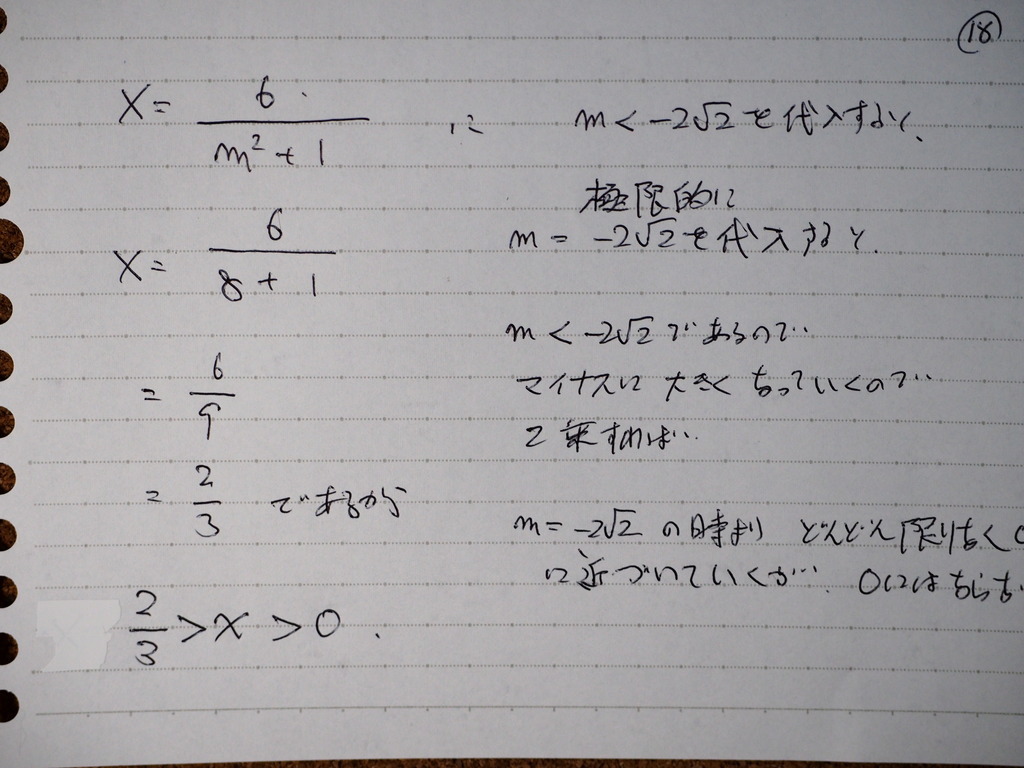 ⑱
X = 6 / (m² + 1) に m < -2√2 を代入すると、
極限的に
X = 6 / (8 + 1) m = -2√2 を代入すると、
m < -2√2 であるので…
= 6 / 9 マイナスに大きくなっていくので…
2乗すれば…
= 2 / 3 であるから
m = -2√2 の時より どんどん限りなく0
に近づいていくが… 0にはならな
2 / 3 > x > 0 .